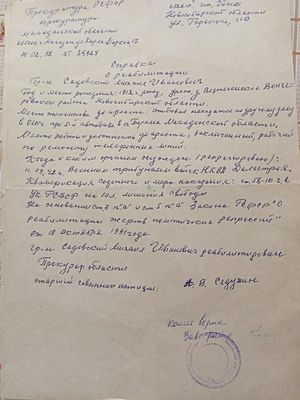 Прокуратура РСФСР
Прокуратура
Магаданской области
Новосибирской области
ул. Горького, 110
Справка
О реабилитации
Гр-н Садовский Михаил Иванович
Год и место рождения: 1912 г. рожд., Вознесенка Венге-
ровского района, Новосибирской области.
Место жительства до ареста: отбывал наказание по другому делу
в Магаданской области,
Место работы и должность до ареста: заключенный, рабочий
по ремонту телефонных линий.
Когда и каким органом осужден (репрессирован):
Военным трибуналом войск НКВД Дальстроя.
Квалификация содеянного и мера наказания: ст. 58-10 ч. 2
УК РСФСР на 10 л. лишения свободы
На основании ст. 3 п. "а" и ст. 5 п. "а" Закона РСФСР "О
реабилитации жертв политических репрессий"
от 18 октября 1991 года
гр-н Садовский Михаил Иванович реабилитирован.
Прокурор области
старший советник юстиции
А. В. Седухин
копия верна